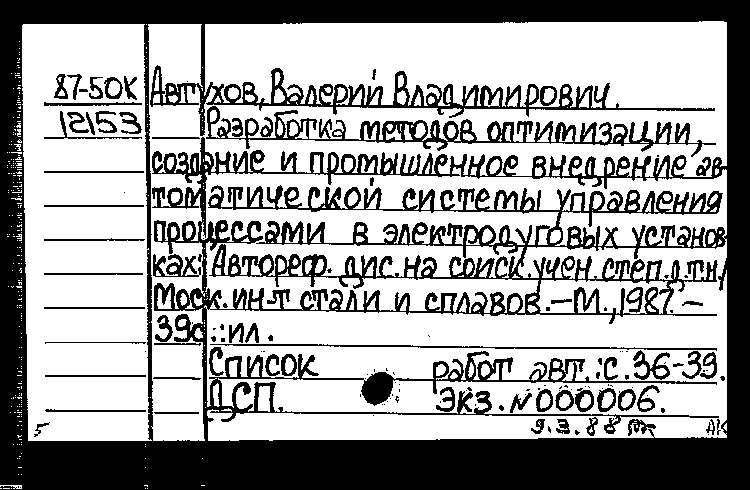 87-50К Автухов, Валерий Владимирович.
12153 Разработка методов оптимизации,
создание и промышленное внедрение ав-
томатической системы управления
процессами в электродуговых установ-
ках: Автореф. дис. на соиск. учен. степ. д.т.н/
Моск. ин-т стали и сплавов.—М., 1987.—
39с.:ил.
Список работ авт.:с.36-39.
ДСП. Экз. N000006.
5 9.3.88 АК